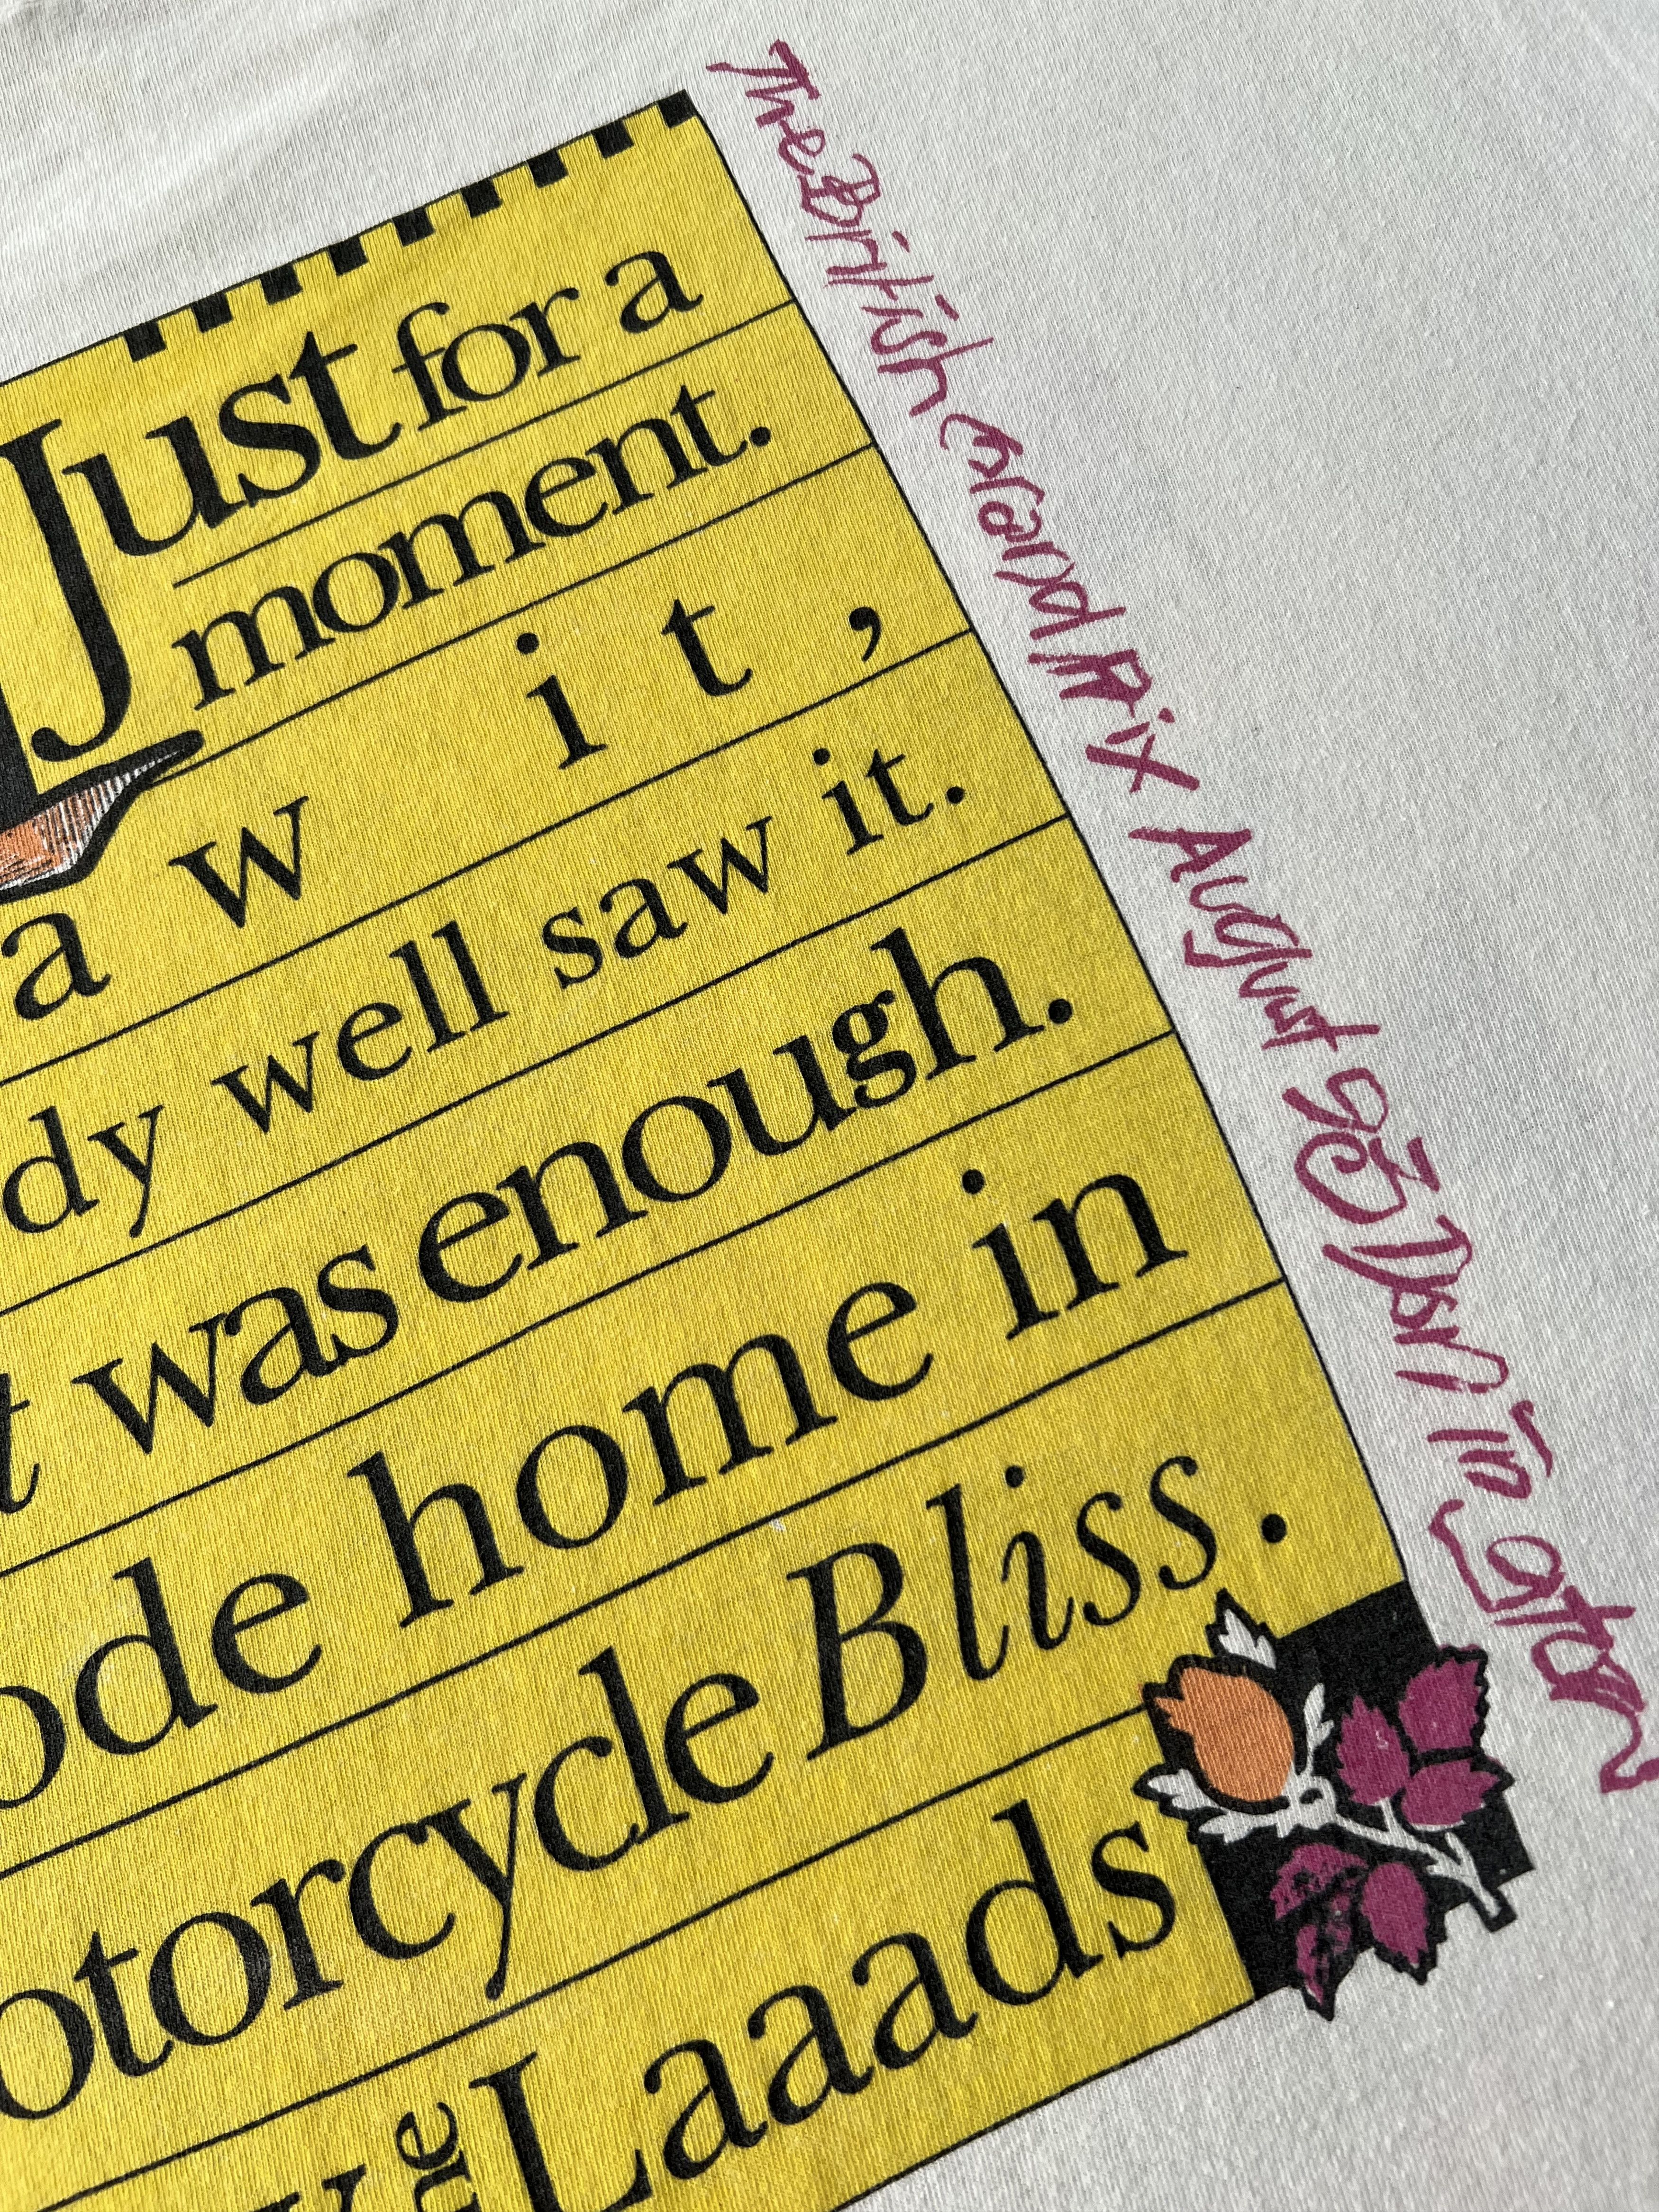 Just for a
moment.
a w i t ,
dy well saw it.
t was enough.
ode home in
otorcycle Bliss.
Laaads
The British Grand Prix August 93 Donington